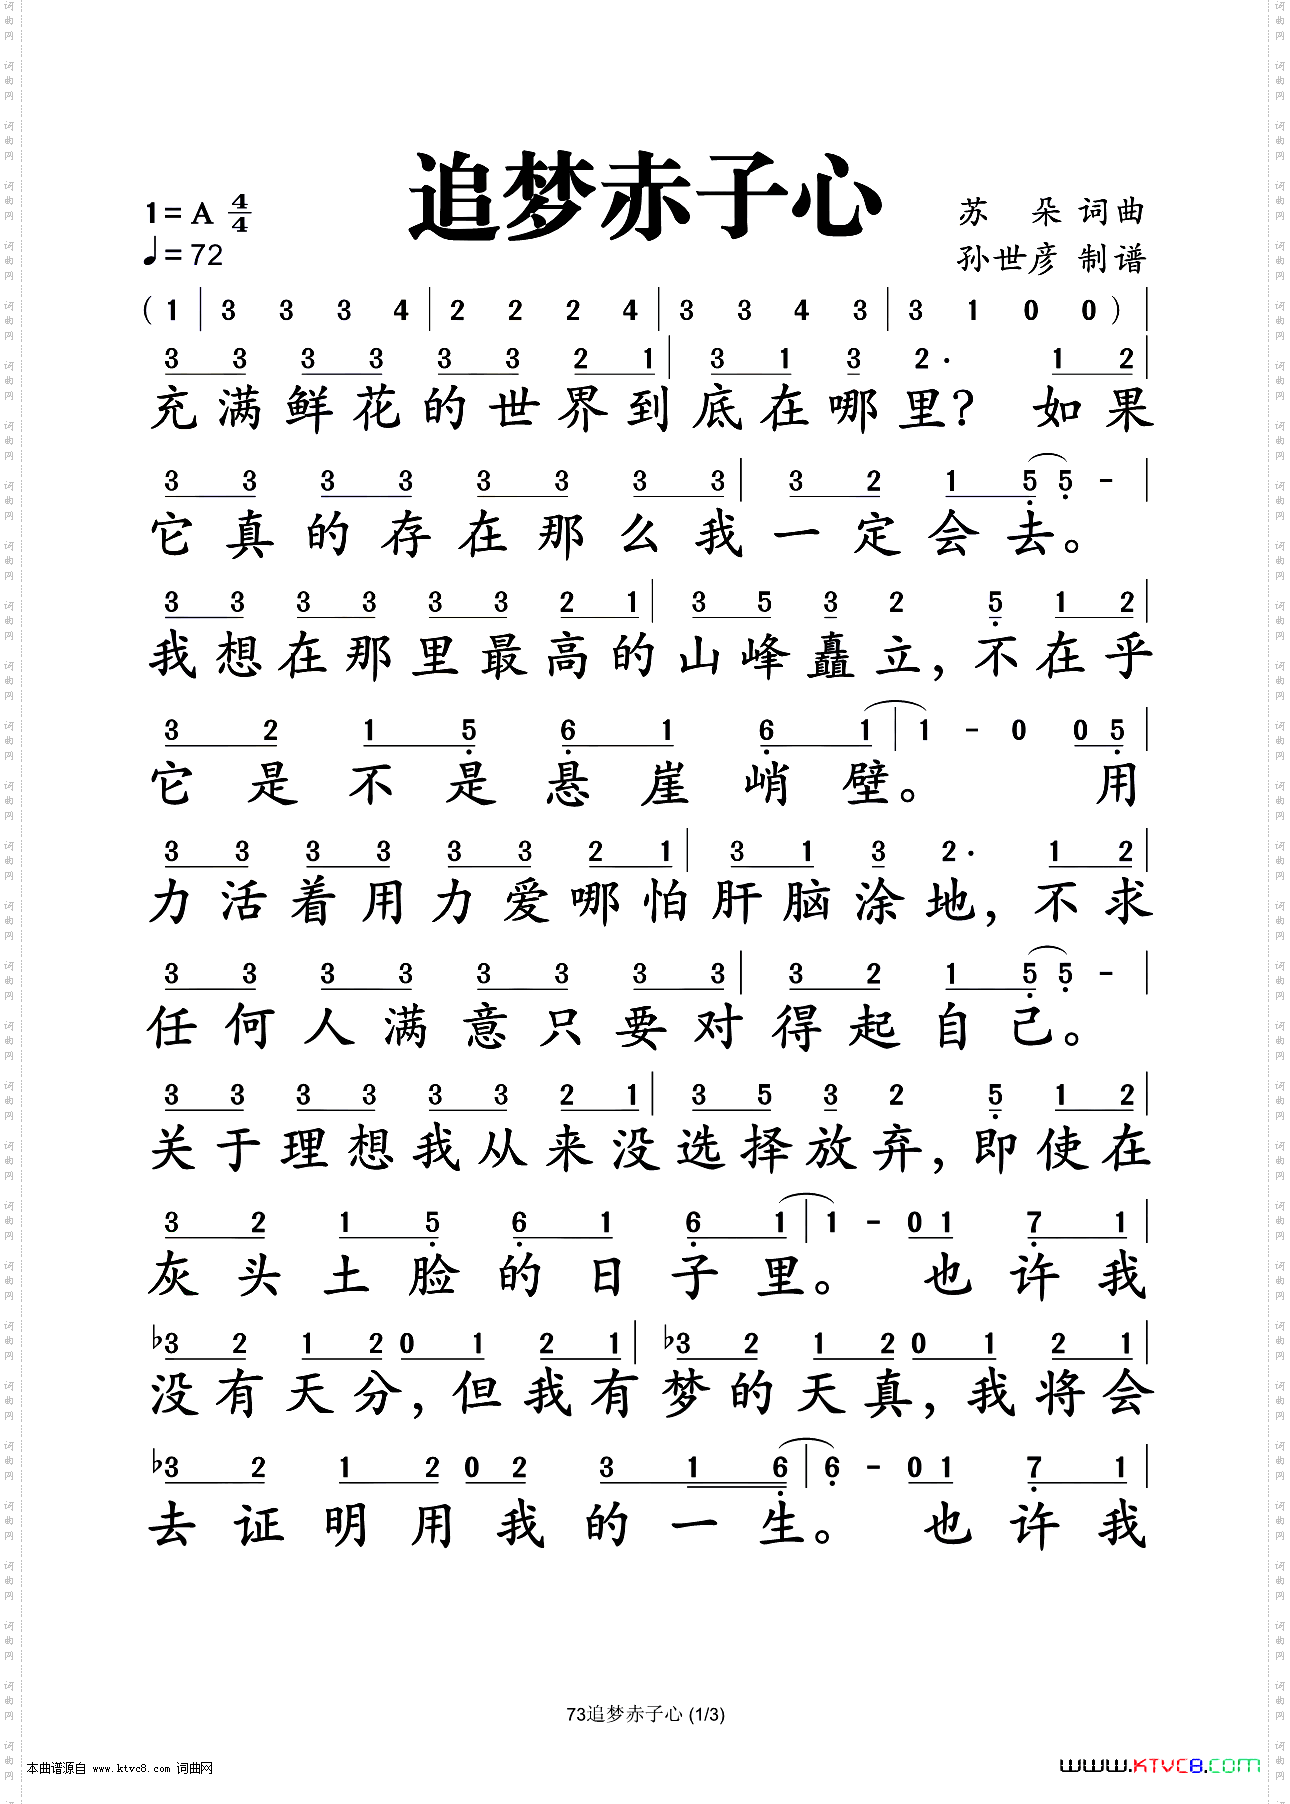 追梦赤子心
1=A 4/4
♩=72
苏 朵 词曲
孙世彦 制谱
(1|3 3 3 4|2 2 2 4|3 3 4 3|3 1 0 0)|
3 3 3 3 3 3 2 1|3 1 3 2· 1 2|
充满鲜花的世界到底在哪里？如果
3 3 3 3 3 3 3 3|3 2 1 5 5 -|
它真的存在那么我一定会去。
3 3 3 3 3 3 2 1|3 5 3 2 5 1 2|
我想在那里最高的山峰矗立，不在乎
3 2 1 5 6 1 6 1|1 - 0 0 5|
它是不是悬崖峭壁。用
3 3 3 3 3 3 2 1|3 1 3 2· 1 2|
力活着用力爱哪怕肝脑涂地，不求
3 3 3 3 3 3 3 3|3 2 1 5 5 -|
任何人满意只要对得起自己。
3 3 3 3 3 3 2 1|3 5 3 2 5 1 2|
关于理想我从来没选择放弃，即使在
3 2 1 5 6 1 6 1|1 - 0 1 7 1|
灰头土脸的日子里。也许我
♭3 2 1 2 0 1 2 1|♭3 2 1 2 0 1 2 1|
没有天分，但我有梦的天真，我将会
♭3 2 1 2 0 2 3 1 6|6 - 0 1 7 1|
去证明用我的一生。也许我
73追梦赤子心 (1/3)
本曲谱源自 www.ktvc8.com 词曲网
www.KTVC8.com